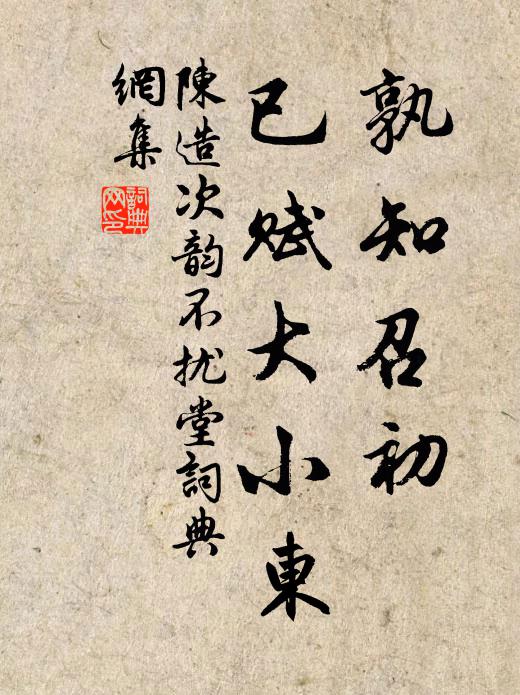 孰知召初
已賦大小東
陳造次韵不扰堂詞典
網集
詞典網印